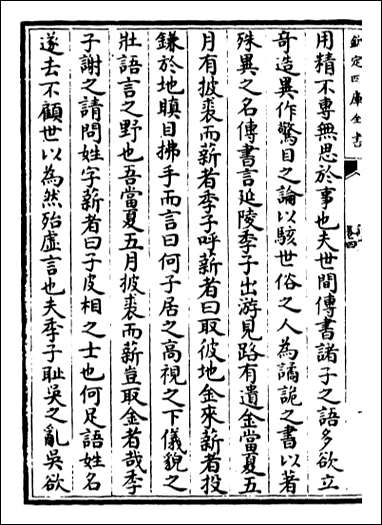 欽定四庫全書
卷四
用精不專無思於事也夫世間傳書諸子之語多欲立
奇造異作驚目之論以駭世俗之人為譎詭之書以著
殊異之名傳書言延陵季子出游見路有遺金當夏五
月有披裘而薪者季子呼薪者曰取彼地金來薪者投
鎌於地瞋目拂手而言曰何子居之高視之下儀貌之
壯語言之野也吾當夏五月披裘而薪豈取金者哉季
子謝之請問姓字薪者曰子皮相之士也何足語姓名
遂去不顧世以為然殆虛言也夫季子恥吳之亂吳欲